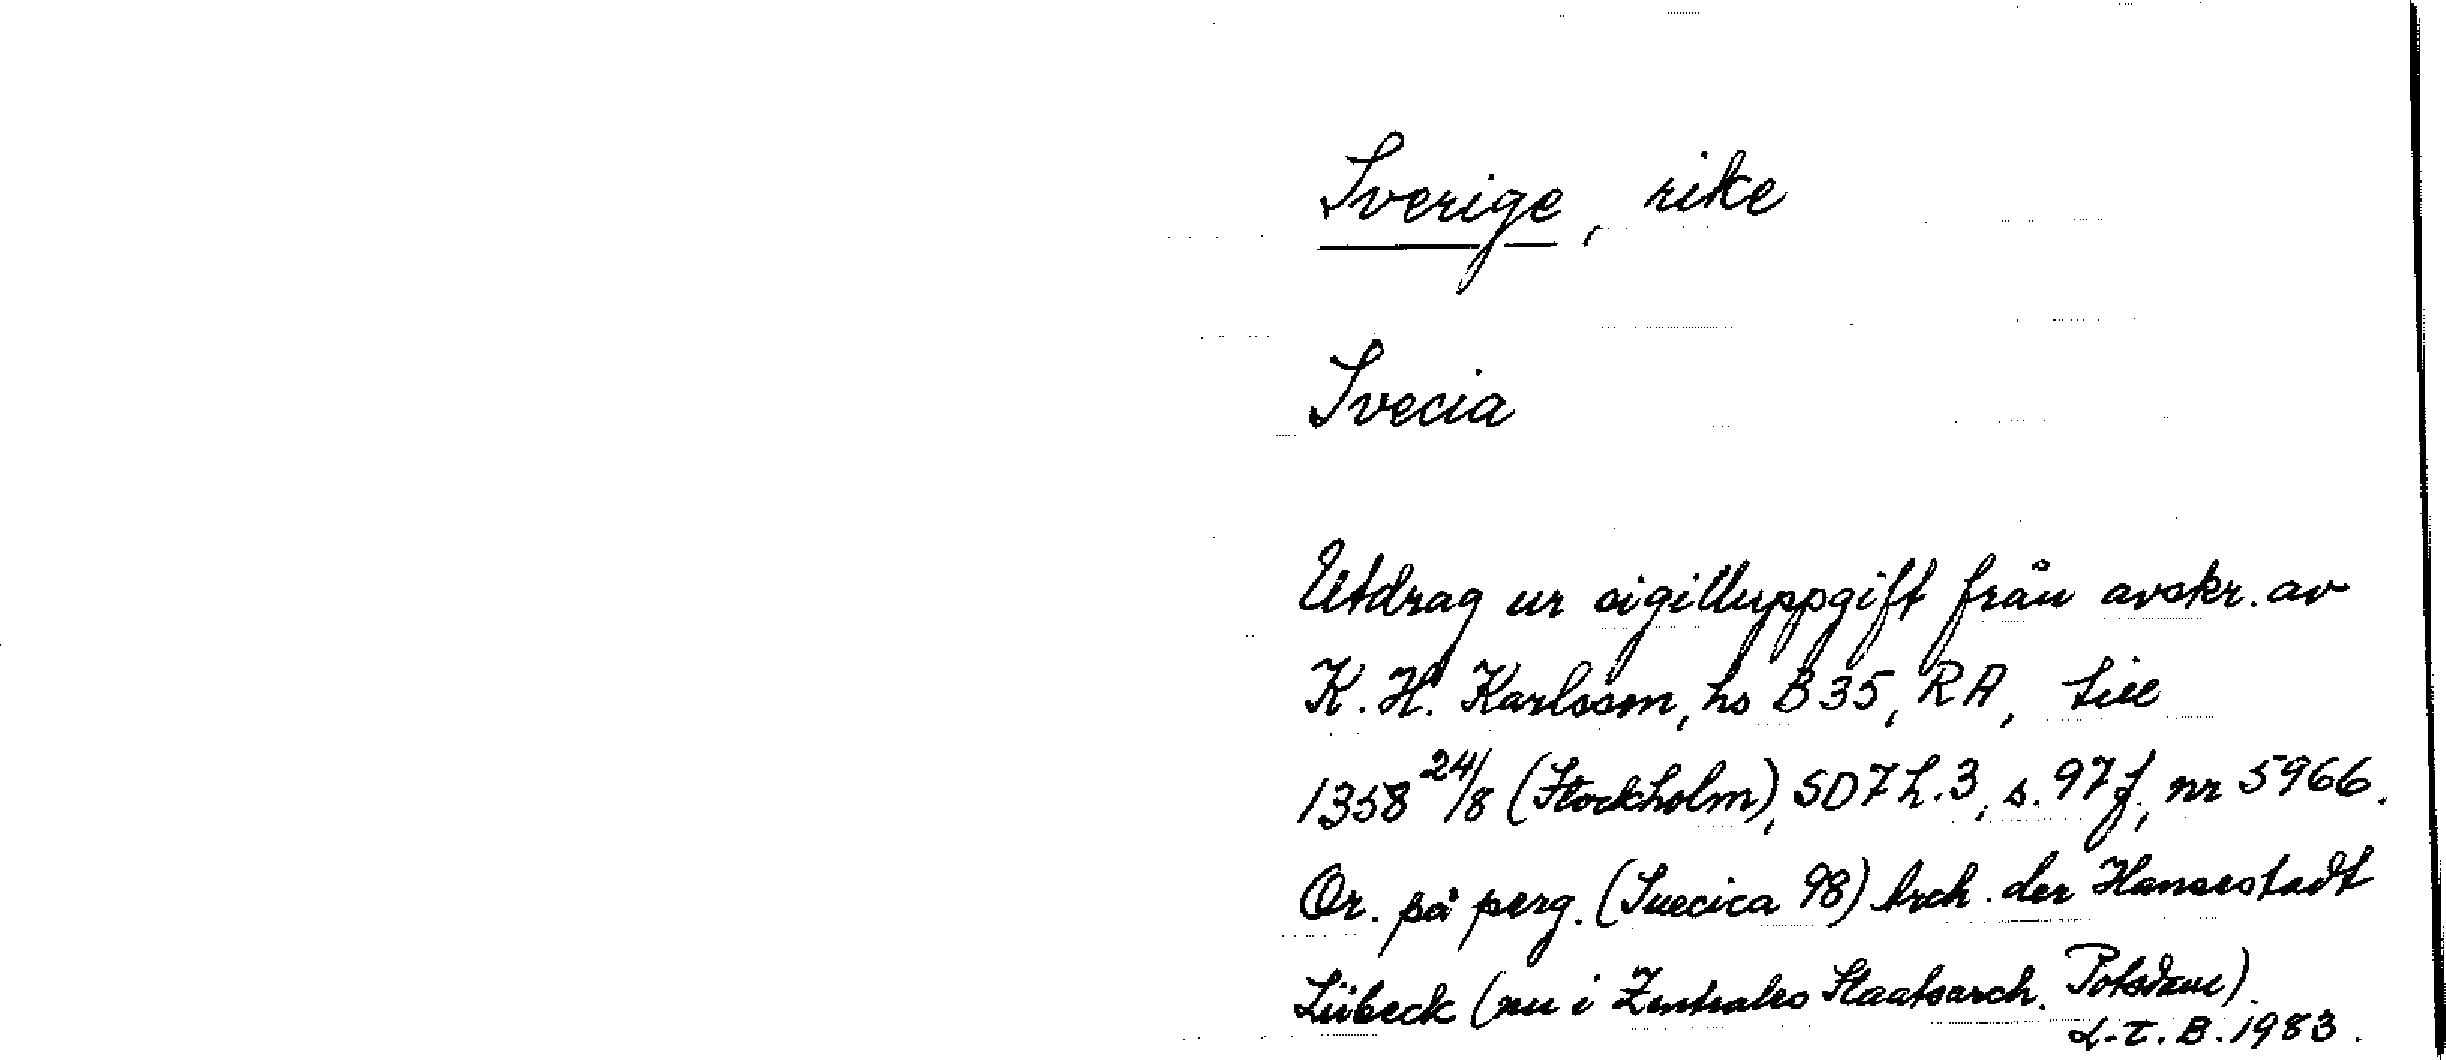 Sverige, rike
Svecia
Utdrag ur sigilluppgift från avskr. av
K. H. Karlsson, hs B 35, RA, till
1358 24/8 (Stockholm), SD 7 h. 3, s. 97 f, nr 5966.
Or. på perg. (Suecica 98) Arch. der Hansestadt
Lübeck (nu i Zentrales Staatsarch. Potsdam).
L-T. B. 1983.